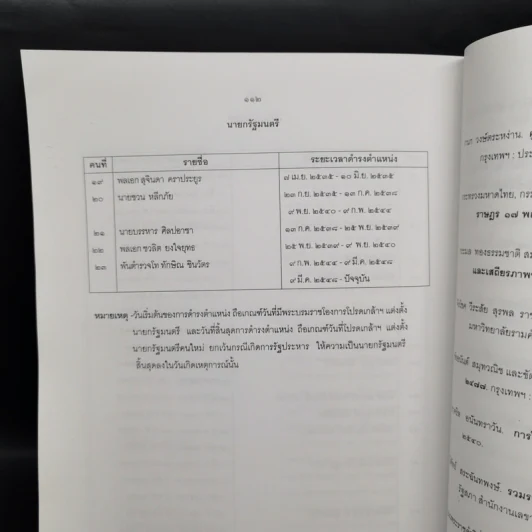 ๑๑๒
นายกรัฐมนตรี
คนที่ รายชื่อ ระยะเวลาดำรงตำแหน่ง
๑๙ พลเอก สุจินดา คราประยูร ๗ เม.ย. ๒๕๓๕ - ๑๐ มิ.ย. ๒๕๓๕
๒๐ นายชวน หลีกภัย ๒๓ ก.ย. ๒๕๓๕ - ๑๓ ก.ค. ๒๕๓๘
๙ พ.ย. ๒๕๔๐ - ๙ ก.พ. ๒๕๔๔
๒๑ นายบรรหาร ศิลปอาชา ๑๓ ก.ค. ๒๕๓๘ - ๒๕ พ.ย. ๒๕๓๙
๒๒ พลเอก ชวลิต ยงใจยุทธ ๒๕ พ.ย. ๒๕๓๙ - ๙ พ.ย. ๒๕๔๐
๒๓ พันตำรวจโท ทักษิณ ชินวัตร ๙ ก.พ. ๒๕๔๔ - ๙ มี.ค. ๒๕๔๘
๙ มี.ค. ๒๕๔๘ - ปัจจุบัน
หมายเหตุ -วันเริ่มต้นของการดำรงตำแหน่ง ถือเกณฑ์วันที่มีพระบรมราชโองการโปรดเกล้าฯ แต่งตั้ง
นายกรัฐมนตรี และวันที่สิ้นสุดการดำรงตำแหน่ง ถือเกณฑ์วันที่โปรดเกล้าฯ แต่งตั้ง
นายกรัฐมนตรีคนใหม่ ยกเว้นกรณีเกิดการรัฐประหาร ให้ความเป็นนายกรัฐมนตรี
สิ้นสุดลงในวันเกิดเหตุการณ์นั้น
วงษ์ตระหง่าน.
กรุงเทพฯ : ประ
กระทรวงมหาดไทย, กรม
ราษฎร ๑๗ พ
ทองธรรมชาติ
และเสถียรภาพ
โระสัย สุรพล ราช
มหาวิทยาลัยรามค
สมุทวณิช และชัย
๒๔๗๗. กรุงเทพฯ :
อนันทราวัน. การ
๒๕๔๐.
ตระฉันทพงษ์. รวมร
รัฐสภา สำนักงานเลขา